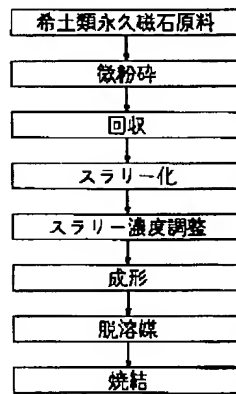 希土類永久磁石原料
微粉砕
回収
スラリー化
スラリー濃度調整
成形
脱溶媒
焼結